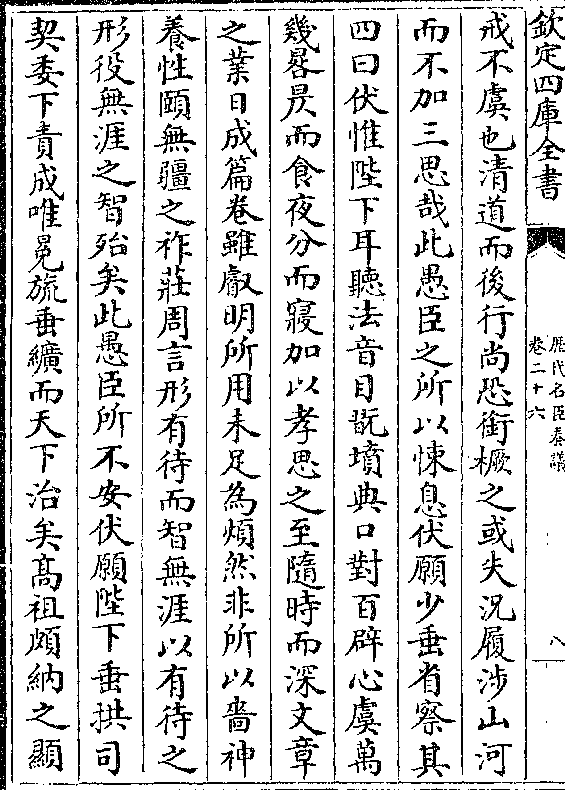 欽定四庫全書
歷代名臣奏議
卷二十六
八
戒不虞也清道而後行尚恐銜橛之或失況履涉山河
而不加三思哉此愚臣之所以悚息伏願少垂省察其
四曰伏惟陛下耳聽法音目翫墳典口對百辟心虞萬
幾晷昃而食夜分而寢加以孝思之至隨時而深文章
之業日成篇卷雖叡明所用未足為煩然非所以嗇神
養性頤無疆之祚莊周言形有待而智無涯以有待之
形役無涯之智殆矣此愚臣所不安伏願陛下垂拱司
契委下責成唯冕旒垂纊而天下治矣髙祖頗納之顯